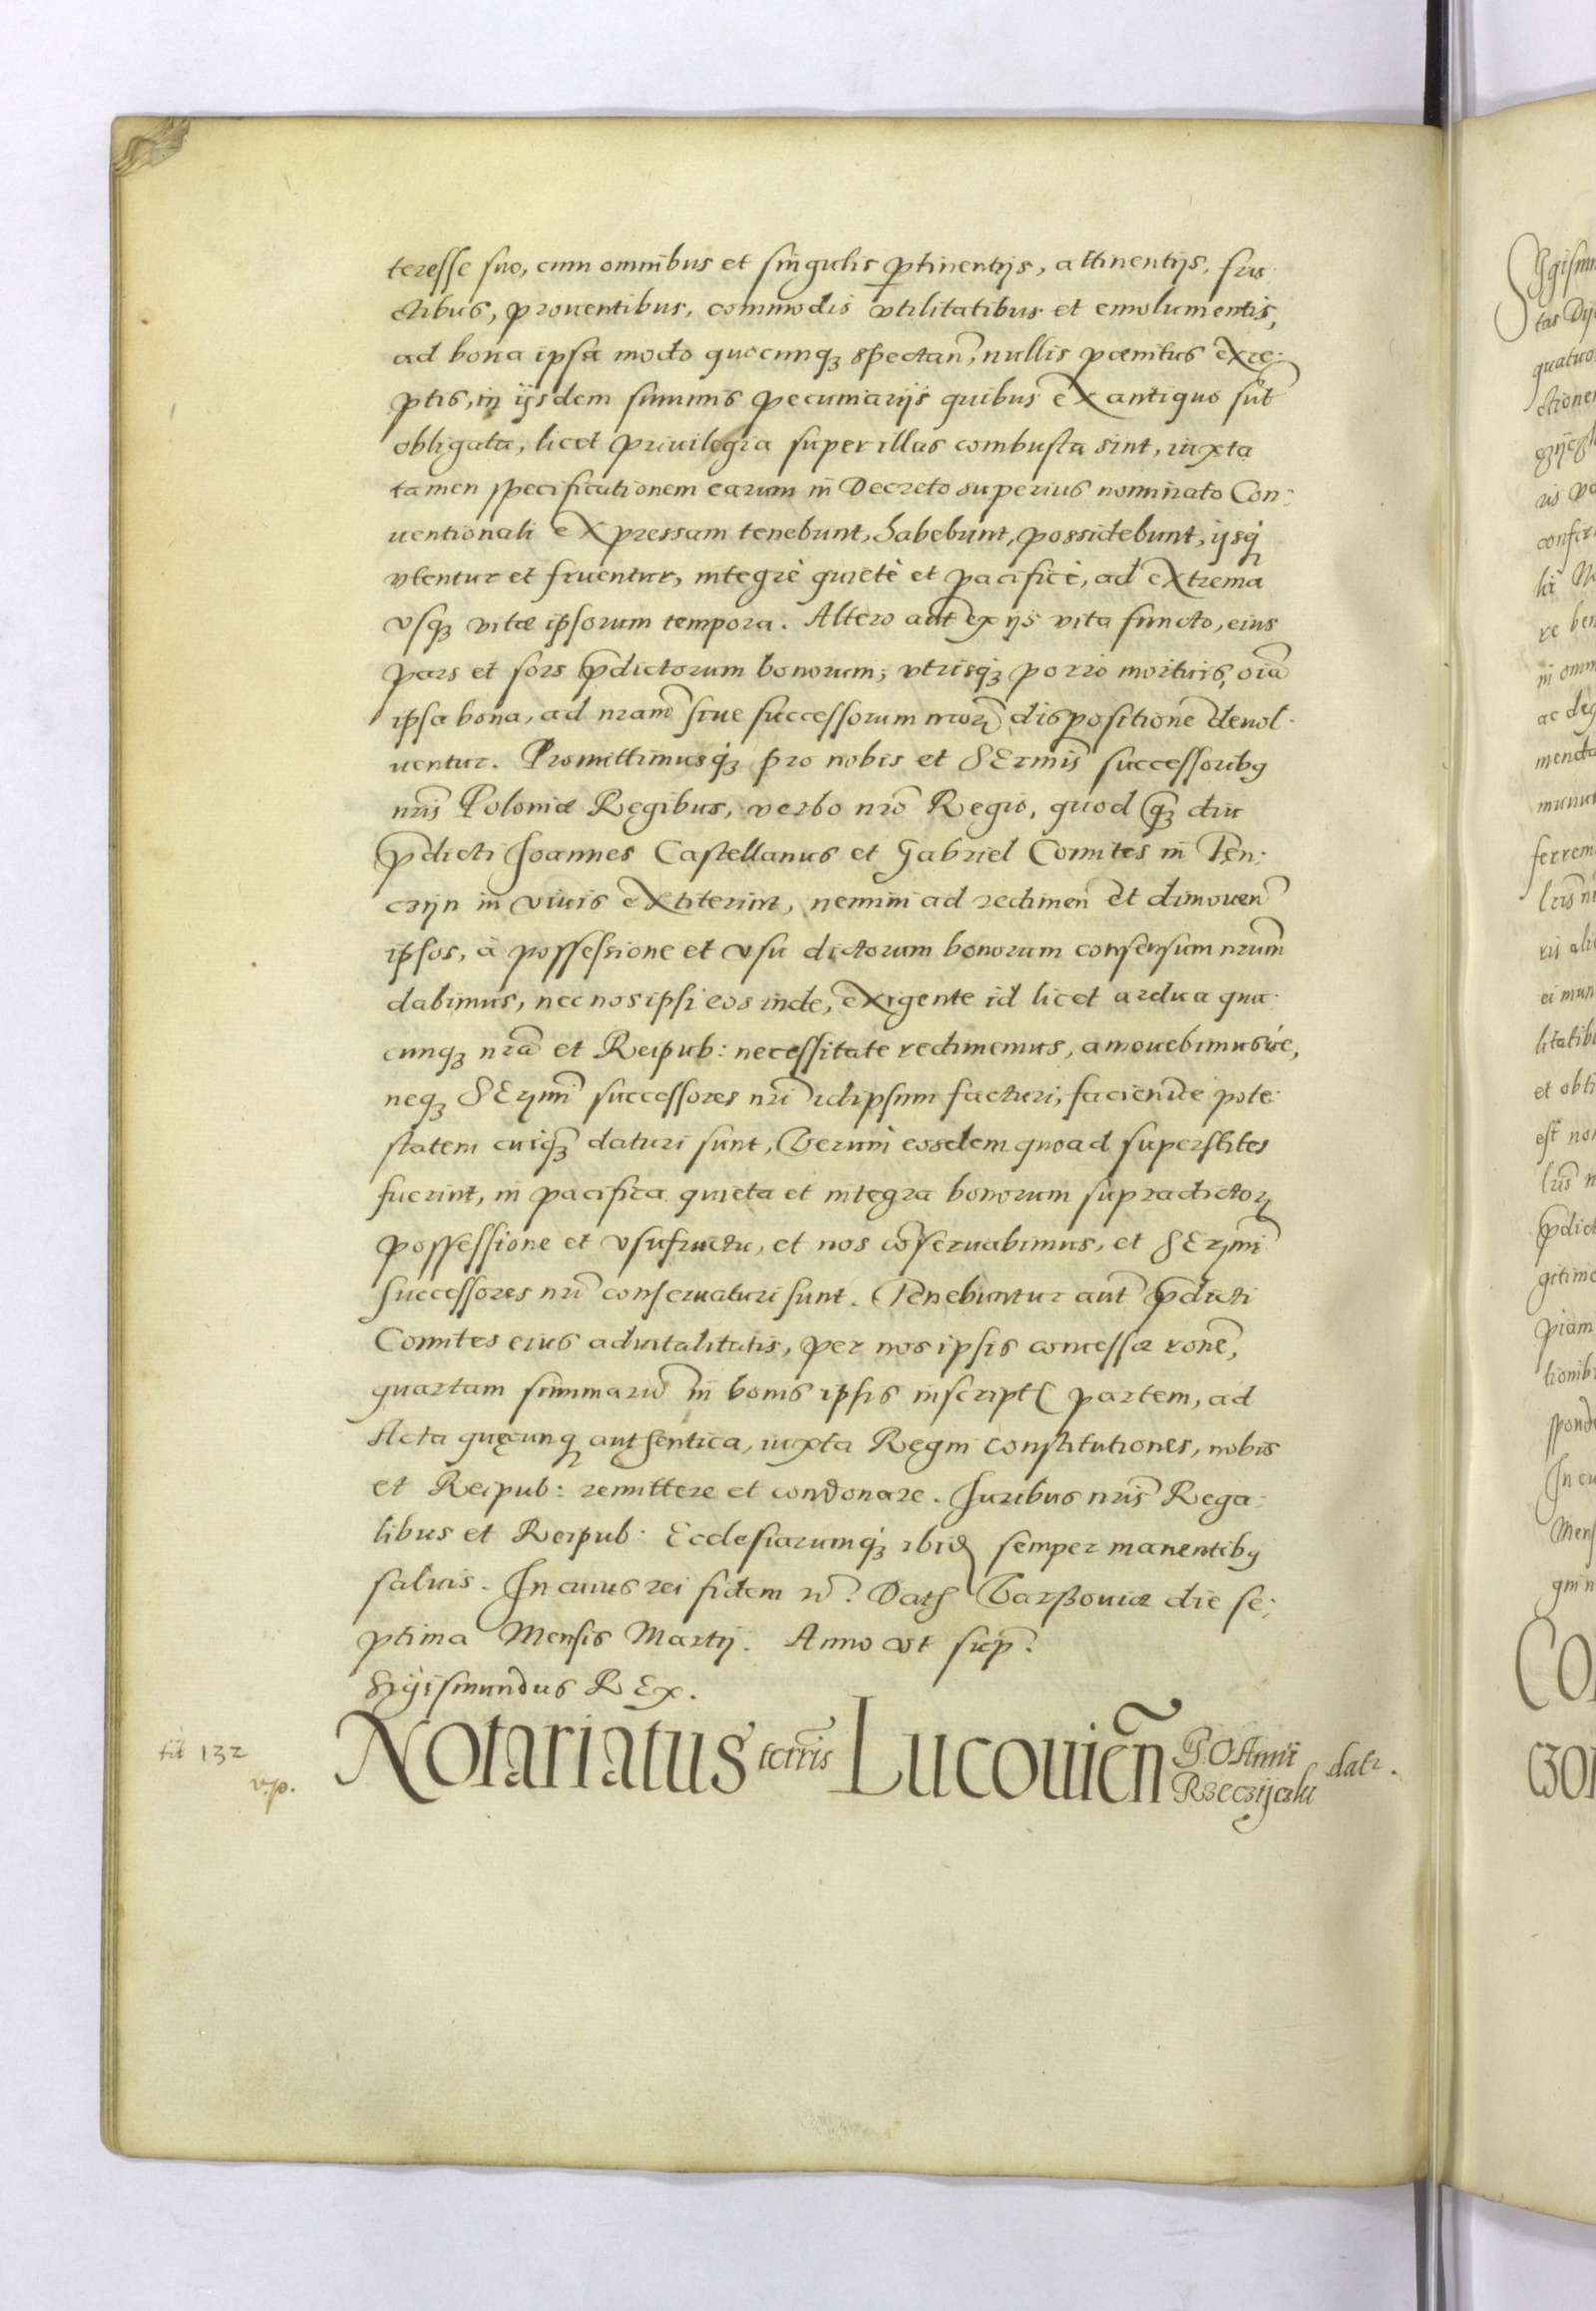 teresse suo, cum omnibus et singulis ptinentijs, attinentijs, fru
ctibus, prouentibus, commodis vtilitatibus et emolumentis,
ad bona ipsa modo quocunqꝫ spectañ, nullis pœnitus exce:
ptis, in ijsdem summis pecuniarijs quibus ex antiquo sũt
obligata, licet priuilegia super illas combusta sint, iuxta
tamen specificationem earum in Decreto superius nominato Con:
uentionali expressam tenebunt, habebunt, possidebunt, ijsqꝫ
vtentur et fruentur, integrè quietè et pacificè, ad extrema
vsqꝫ vitæ ipsorum tempora. Altero aũt ex ijs vita functo, eius
pars et sors p̃dictorum bonorum, vtrisqꝫ porro mortuis, oĩa
ipsa bona, ad nr̃am siue successorum nror̃ dispositionẽ deuol:
uentur. Promittimusqꝫ pro nobis et SErmis̃ successoribꝰ
nrĩs Poloniæ Regibus, verbo nrõ Regio, quod q̃ꝫ diu
p̃dicti Joannes Castellanus et Gabriel Comites in Ten:
czijn in viuis extiterint, nemini ad redimeñ et dimoueñ
ipsos, à possessione et vsu dictorum bonorum consensum nrũm
dabimus, nec nos ipsi eos inde, exigente id licet ardua qua:
cunqꝫ nrã et Reipub: necessitate redimemus, amouebimusue,
neqꝫ SErmĩ successores nrĩ idipsum facturi, faciendiue pote:
statem cuiq̃ꝫ daturi sunt, Verum eosdem quoad superstites
fuerint, in pacifica quieta et integra bonorum supradictorꝝ
possessione et vsufructu, et nos cõseruabimus, et SErmĩ
successores nrĩ conseruaturi sunt. Tenebuntur aũt p̃dicti
Comites eius aduitalitatis, per nos ipsis concessæ ronẽ,
quartam summarũ in bonis ipsis inscript partem, ad
Acta quęcunqꝫ authentica, iuxta Regni constitutiones, nobis
et Reipub: remittere et condonare. Juribus nrĩs Rega:
libus et Reipub: Ecclesiarumqꝫ ibid semper manentibꝰ
saluis. In cuius rei fidem Dat Varßouiæ die se:
ptima Mensis Martij. Anno vt sup̃.
Sigismundus REx.
Notariatus terr̃is Lucouieñ
Rzeczijczki datr.
fit 132